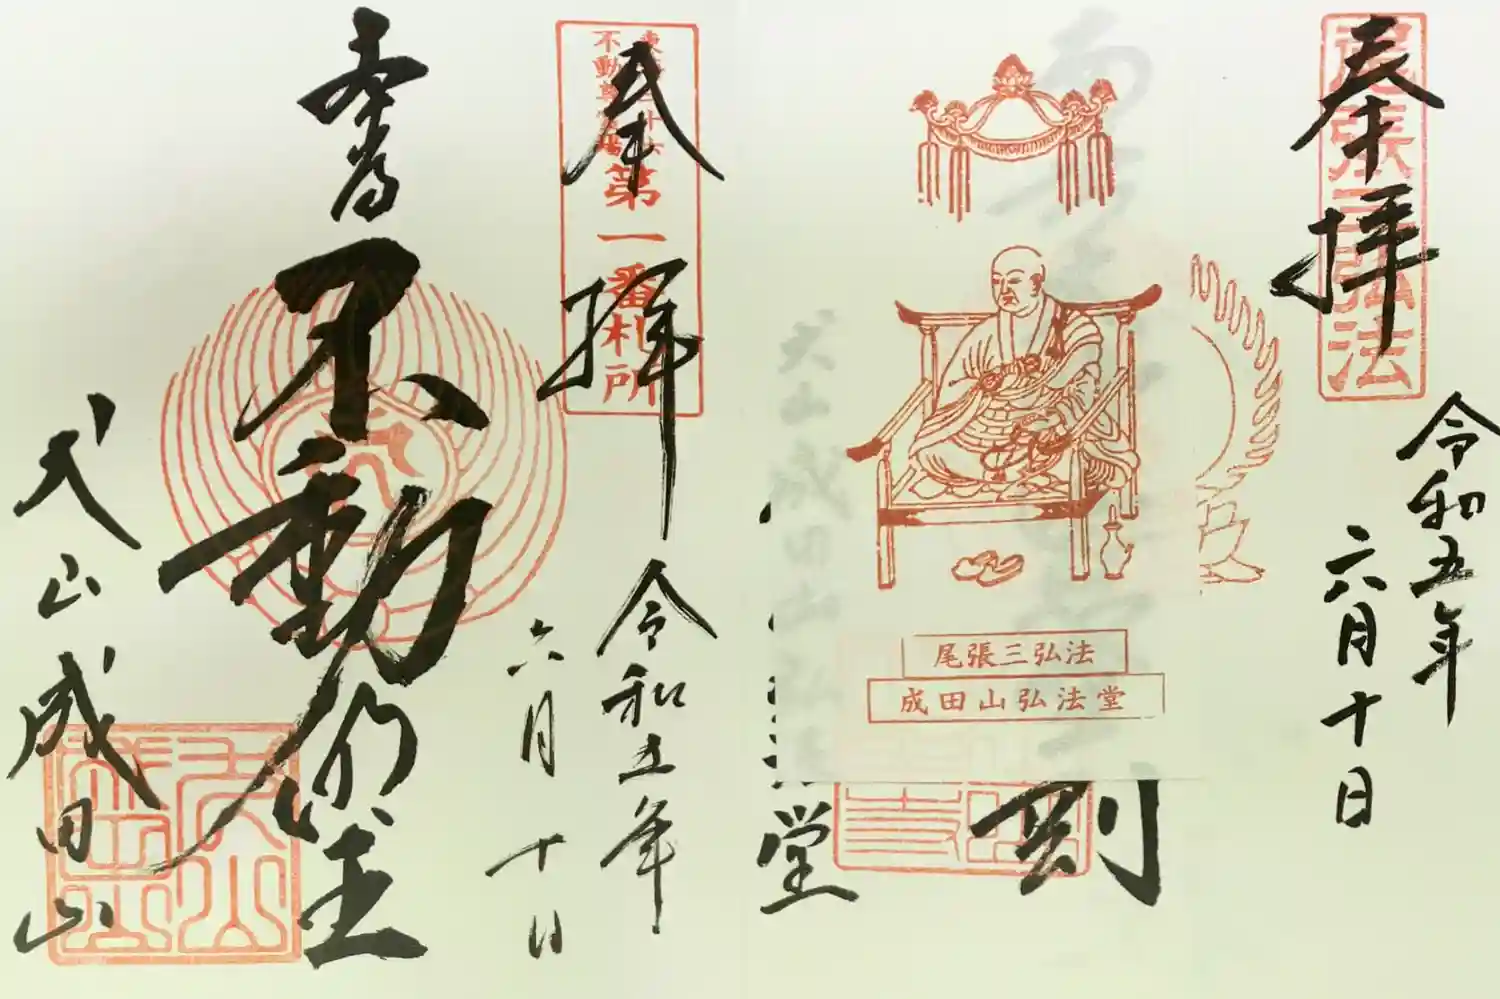 奉拝
尾張三弘法
令和五年
六月十日
尾張三弘法
成田山弘法堂
剛
犬山成田山弘法堂
奉拝
第一番札所
令和五年
六月十日
不動明王
犬山成田山